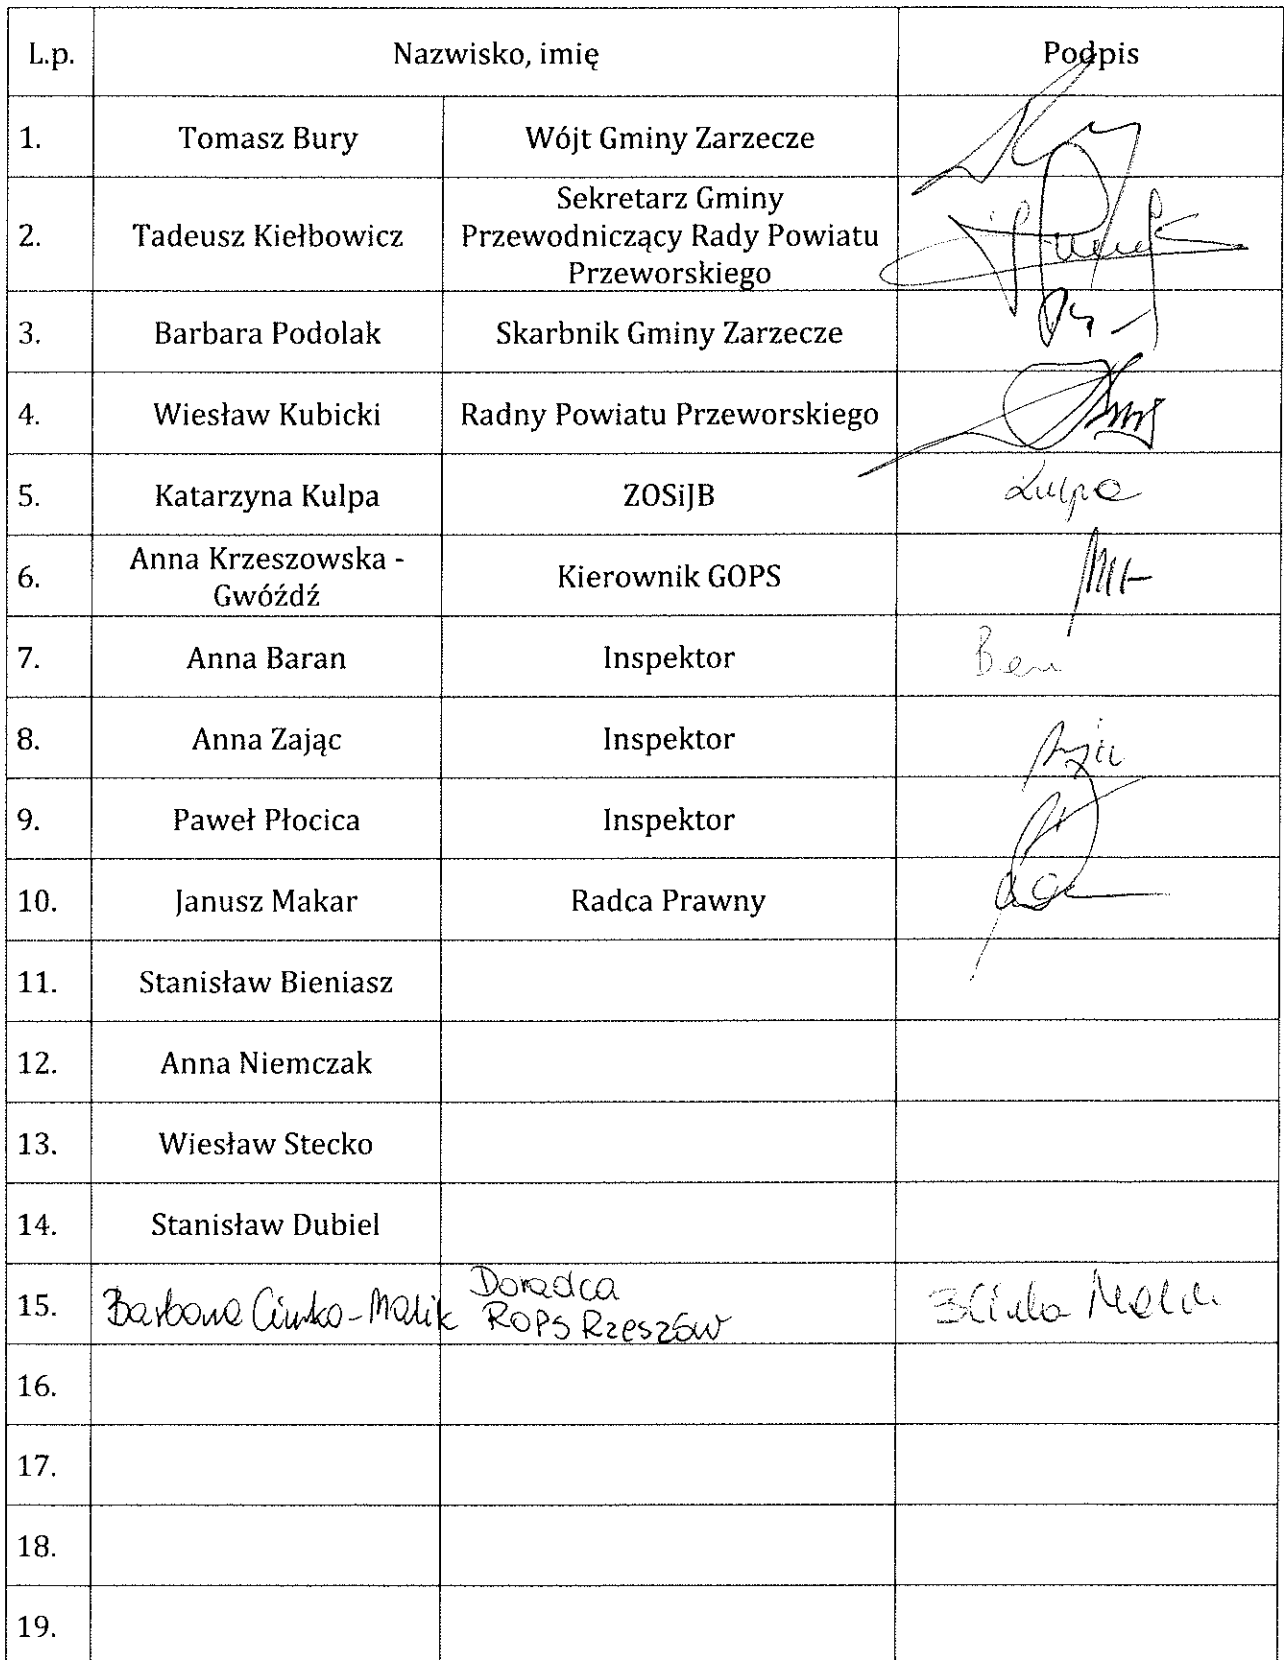 L.p. Nazwisko, imię Podpis
1. Tomasz Bury Wójt Gminy Zarzecze
2. Tadeusz Kiełbowicz Sekretarz Gminy
Przewodniczący Rady Powiatu
Przeworskiego
3. Barbara Podolak Skarbnik Gminy Zarzecze
4. Wiesław Kubicki Radny Powiatu Przeworskiego
5. Katarzyna Kulpa ZOSiJB Kulpa
6. Anna Krzeszowska -
Gwóźdź Kierownik GOPS
7. Anna Baran Inspektor
8. Anna Zając Inspektor
9. Paweł Płocica Inspektor
10. Janusz Makar Radca Prawny
11. Stanisław Bieniasz
12. Anna Niemczak
13. Wiesław Stecko
14. Stanisław Dubiel
15. Barbara -Malik Doradca
ROPS Rzeszów Malik
16.
17.
18.
19.